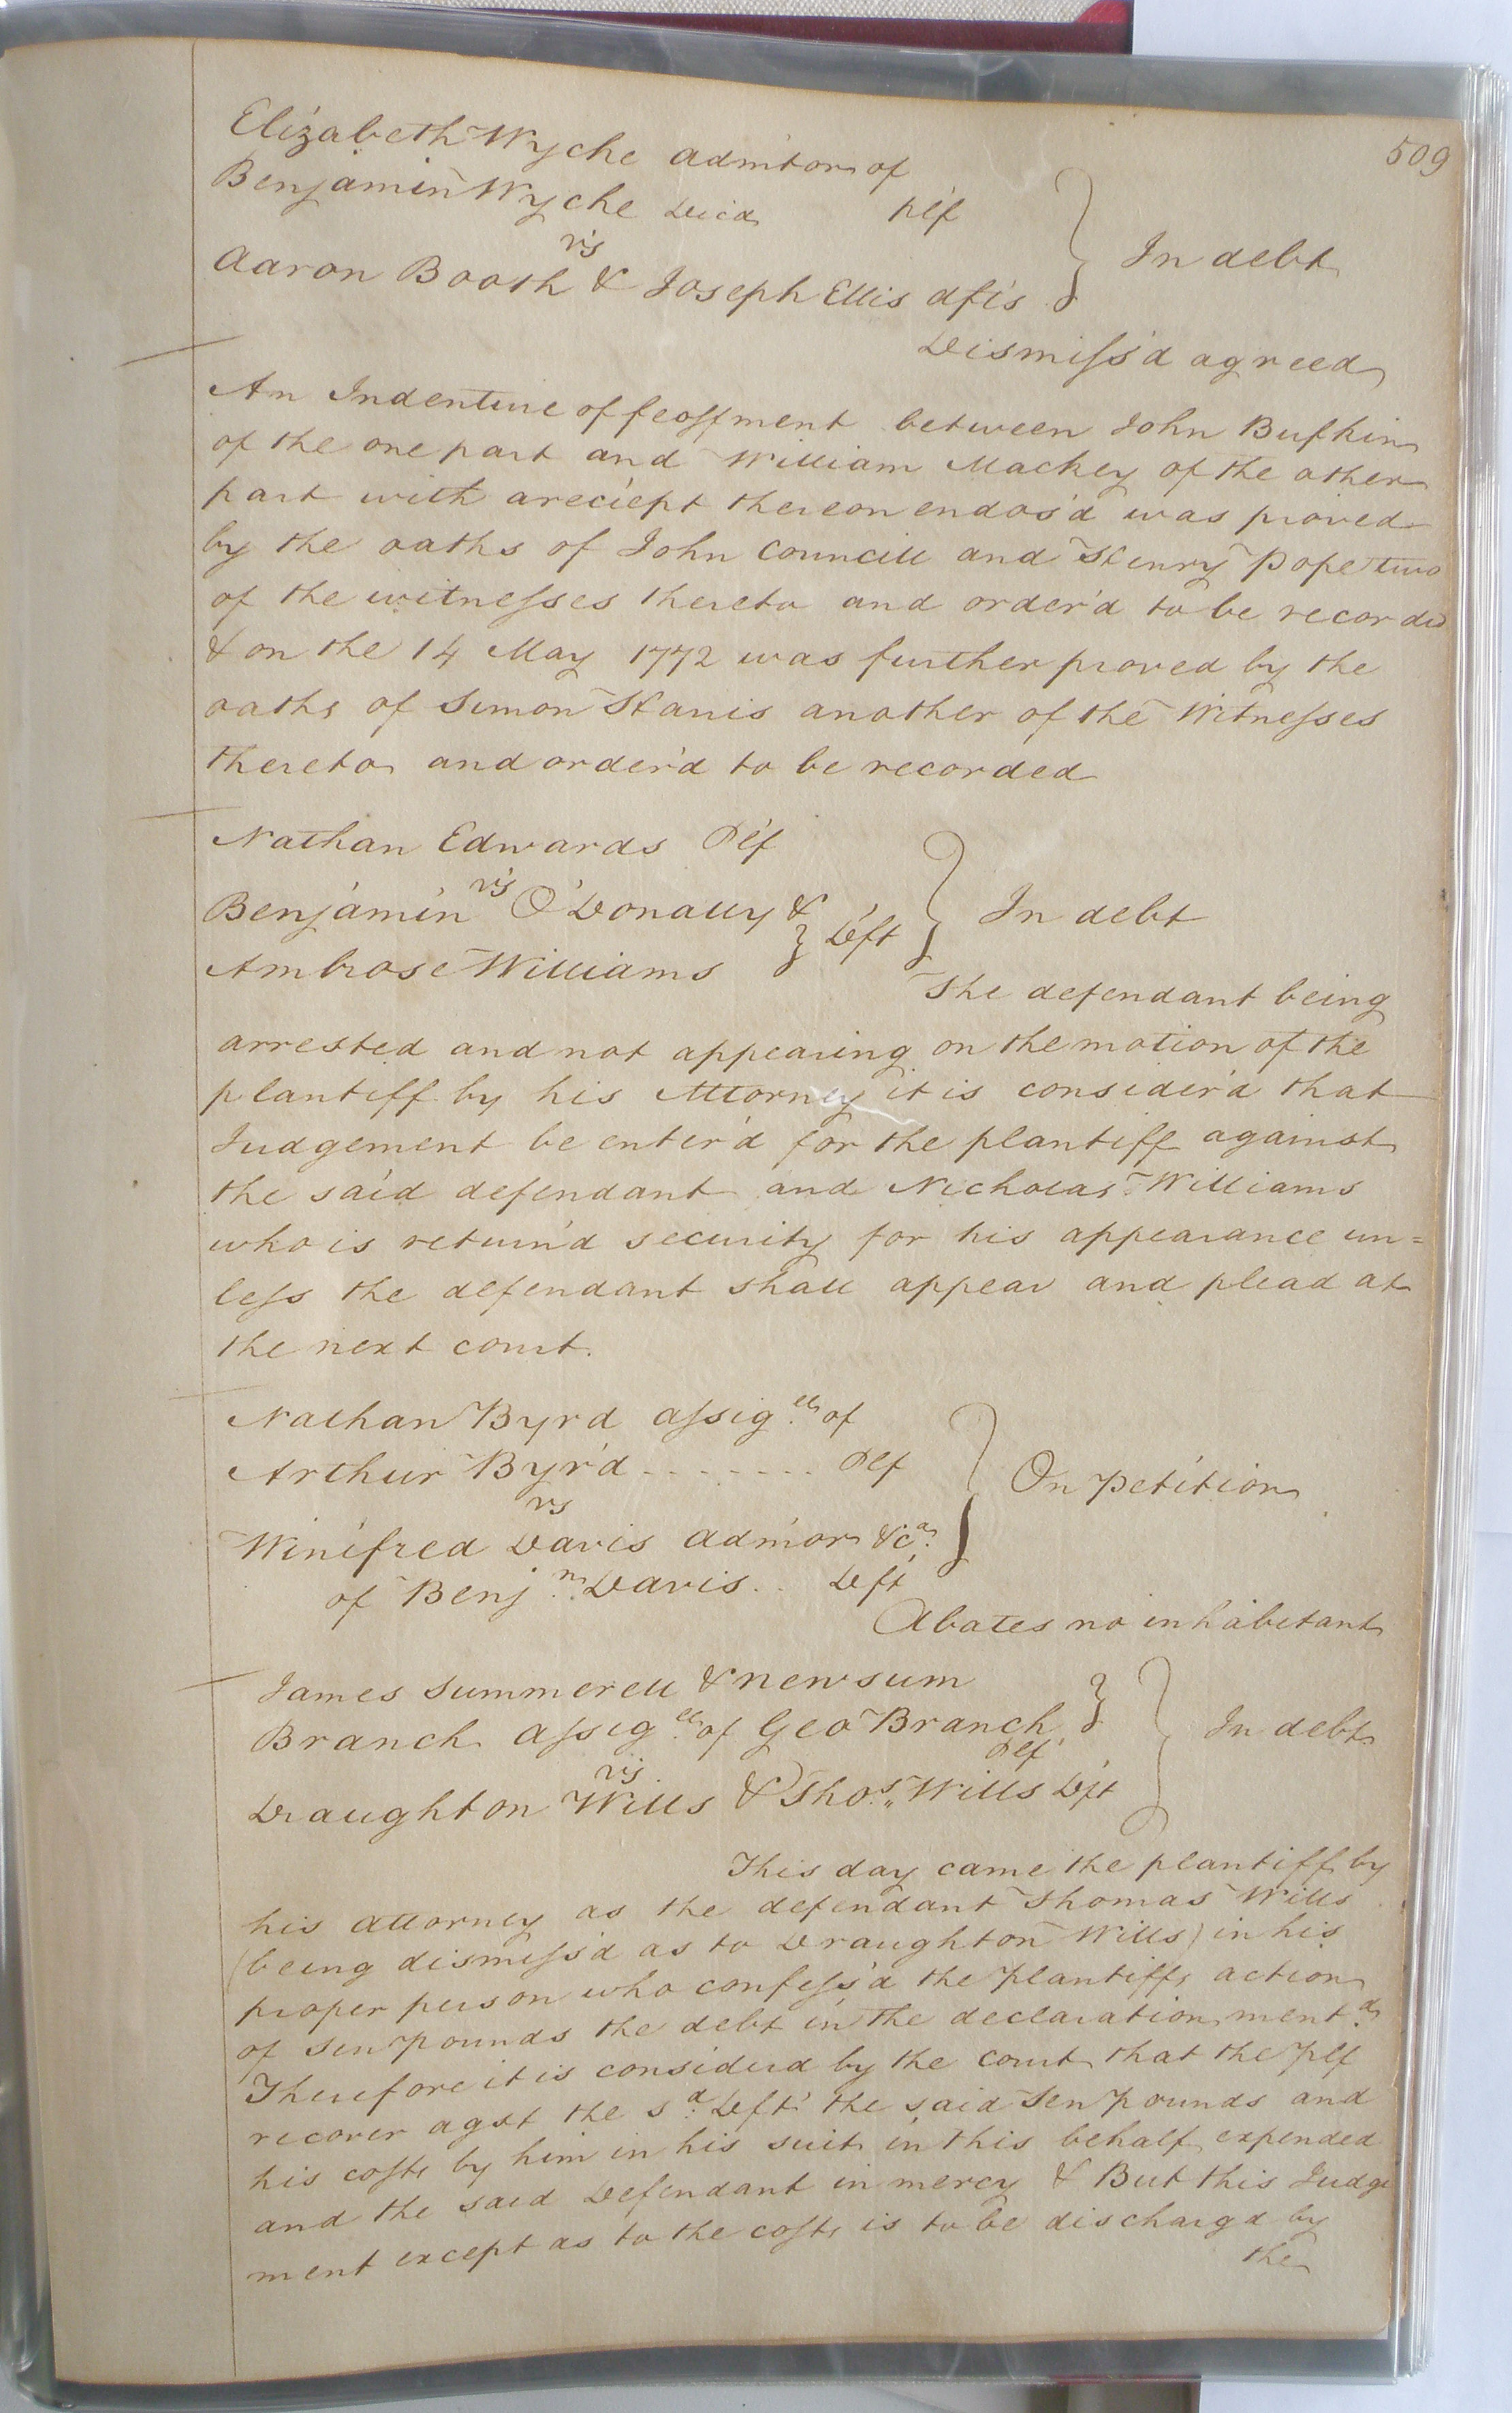 509
Elizabeth Wyche admtor of
Benjamin Wyche Dec'd plf
vs
Aaron Booth & Joseph Ellis dfts } In debt
Dismiss'd agreed
An Indenture of feoffment between John Bufkin
of the one part and William Mackey of the other
part with a reciept thereon endos'd was proved
by the oaths of John Councill and Henry Pope two
of the witnesses thereto and order'd to be recorded
& on the 14 May 1772 was further proved by the
oaths of Simon Harris another of the Witnesses
thereto and order'd to be recorded
Nathan Edwards Plf
vs
Benjamin O'Donally & } Deft } In debt
Ambrose Williams
The defendant being
arrested and not appearing on the motion of the
plantiff by his Attorney it is consider'd that
Judgement be enter'd for the plantiff against
the said defendant and Nicholas Williams
who is return'd security for his appearance un=
less the defendant shall appear and plead at
the next court.
Nathan Byrd assig.ee of
Arthur Byrd ....... Plf
vs } On Petition
Winifred Davis admor &c.a
of Benj.n Davis .. Deft
Abates no inhabetant
James Summerell & newsum
Branch assig.ee of Geo Branch } In debt
Plf
vs
Draughton Wills & Tho.s Wills Dft
This day came the plantiff by
his attorney as the defendant Thomas Wills
(being dismiss'd as to Draughton Wills) in his
proper person who confess'd the plantiffs action
of Ten pounds the debt in the declaration ment.d
Therefore it is considerd by the court that the plf
recover agst the s.d Deft the said Ten pounds and
his costs by him in his suit in this behalf expended
and the said Defendant in mercy & But this Judge
ment except as to the costs is to be dischargd by
the